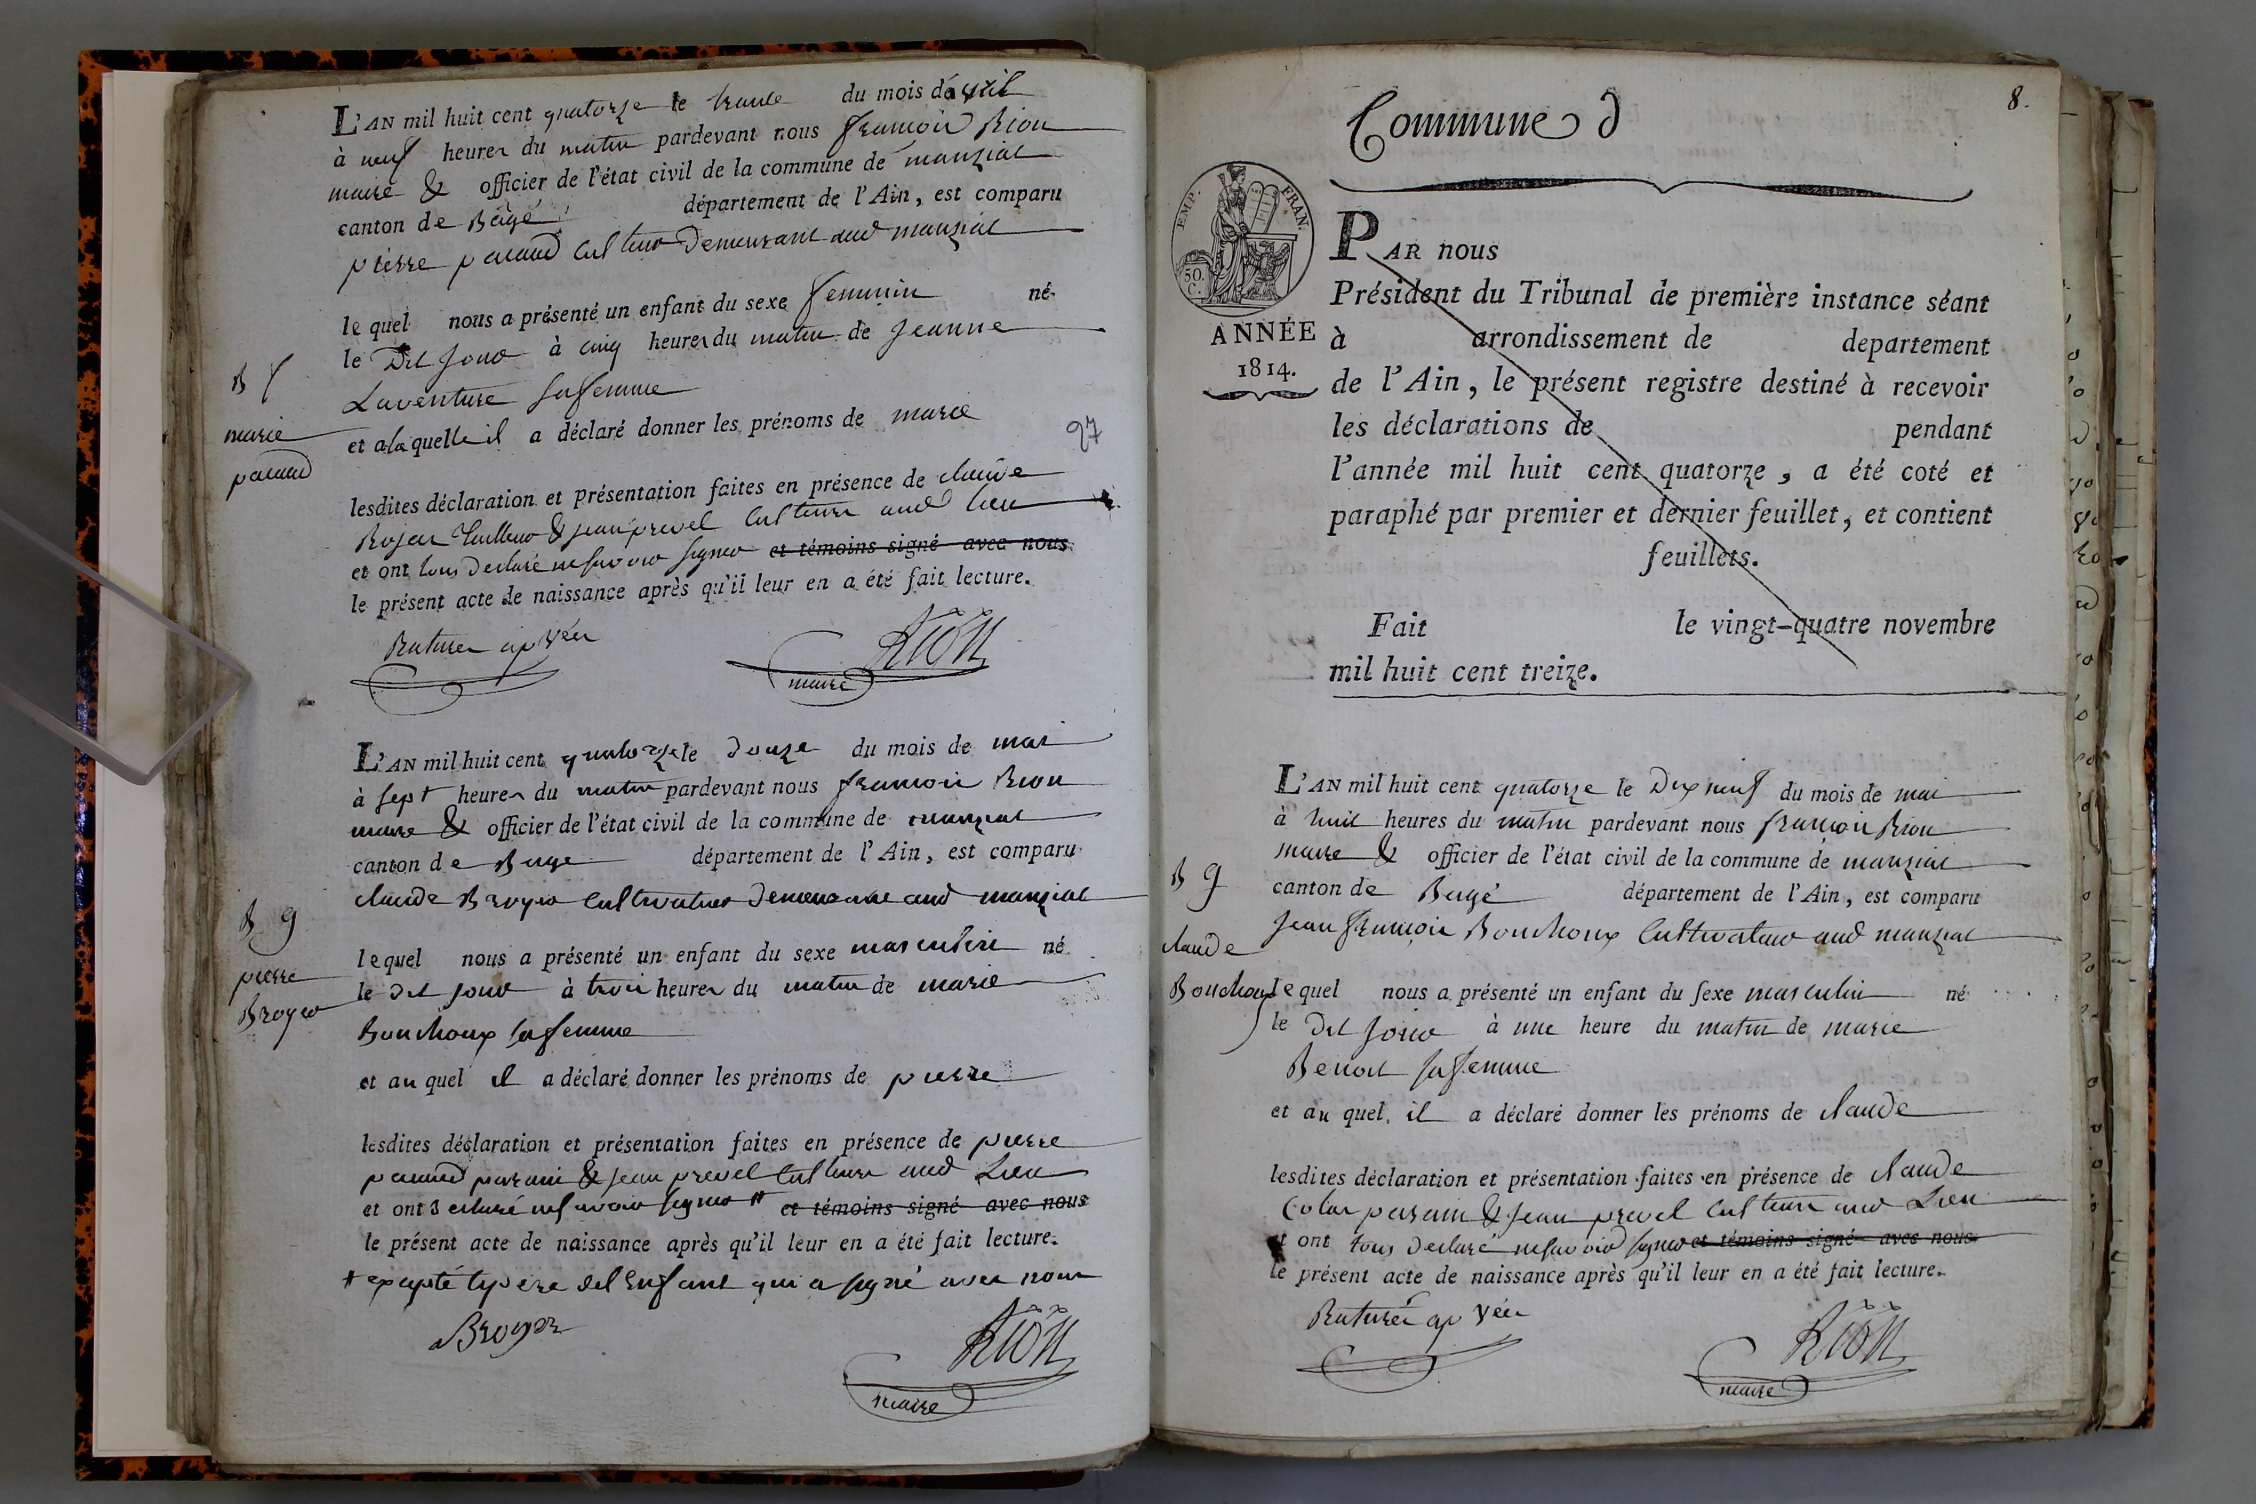 L'AN mil huit cent quatorze le trante du mois d'avril
à neuf heures du matin pardevant nous françois Rion
maire & officier de l'état civil de la commune de manziat
canton de Bâgé département de l'Ain, est comparu
pierre pacaud demeurant aud manziat
le quel nous a présenté un enfant du sexe feminin né
le Dit Jour à cinq heures du matin de Jeanne
Laventure sa femme
et a la quelle il a déclaré donner les prénoms de marie
lesdites déclaration et présentation faites en présence de claude
& jean prevel aud lieu
et ont tous declaré ne savoir signer et témoins signé avec nous
le présent acte de naissance après qu'il leur en a été fait lecture.
RION
maire
B
marie
pacaud
97
L'AN mil huit cent quatorze le douze du mois de mai
à sept heures du matin pardevant nous françois Rion
maire & officier de l'état civil de la commune de manziat
canton de Bage département de l'Ain, est comparu
claude Broyer cultivateur demeurant aud manziat
le quel nous a présenté un enfant du sexe masculin né
le dit jour à trois heures du matin de marie
Bouchoux sa femme
et au quel il a déclaré donner les prénoms de pierre
lesdites déclaration et présentation faites en présence de pierre
pacaud parain & jean prevel aud Lieu
et ont declaré ne savoir signer # et témoins signé avec nous
le présent acte de naissance après qu'il leur en a été fait lecture.
# excepté le pere del Enfant qui a signé avec nous
Broyer
RION
maire
B 9
pierre
Broyer
8.
Commune d
EMP. FRAN.
50. C.
ANNÉE
1814.
PAR nous
Président du Tribunal de première instance séant
à arrondissement de departement
de l'Ain, le présent registre destiné à recevoir
les déclarations de pendant
l'année mil huit cent quatorze, a été coté et
paraphé par premier et dernier feuillet, et contient
feuillets.
Fait le vingt-quatre novembre
mil huit cent treize.
L'AN mil huit cent quatorze le Dix neuf du mois de mai
à huit heures du matin pardevant nous françois Rion
maire & officier de l'état civil de la commune de manziat
canton de Bagé département de l'Ain, est comparu
Jean françois Bouchoux Cultivateur aud manziat
le quel nous a présenté un enfant du sexe masculin né
le Dit Jour à une heure du matin de marie
Benoit sa femme
et au quel il a déclaré donner les prénoms de claude
lesdites déclaration et présentation faites en présence de claude
parain & Jean prevel aud Lieu
et ont tous declaré ne savoir signer et témoins signé avec nous
le présent acte de naissance après qu'il leur en a été fait lecture.
RION
maire
B 9
claude
Bouchoux